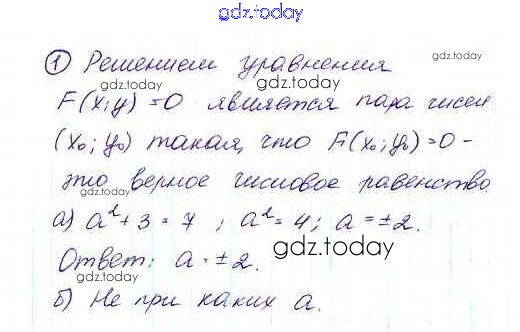 gdz.today
① Решением уравнения
gdz.today
gdz.today
F(x;y)=0 является пара чисел
(x₀; y₀) такая, что F(x₀; y₀)=0 -
gdz.today
gdz.today
это верное числовое равенство.
а) a²+3=7 ; a²=4; a=±2.
gdz.today
Ответ: a=±2.
б) Не при каких a.